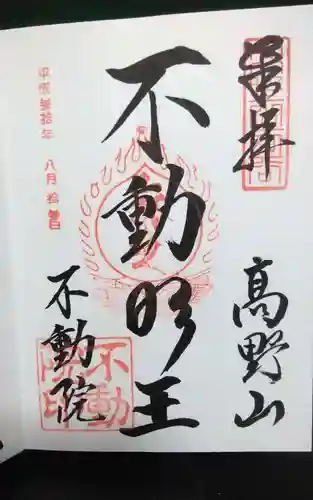 奉拝
高野山
不動明王
平成参拾年 八月 拾参日
不動院
不動院印